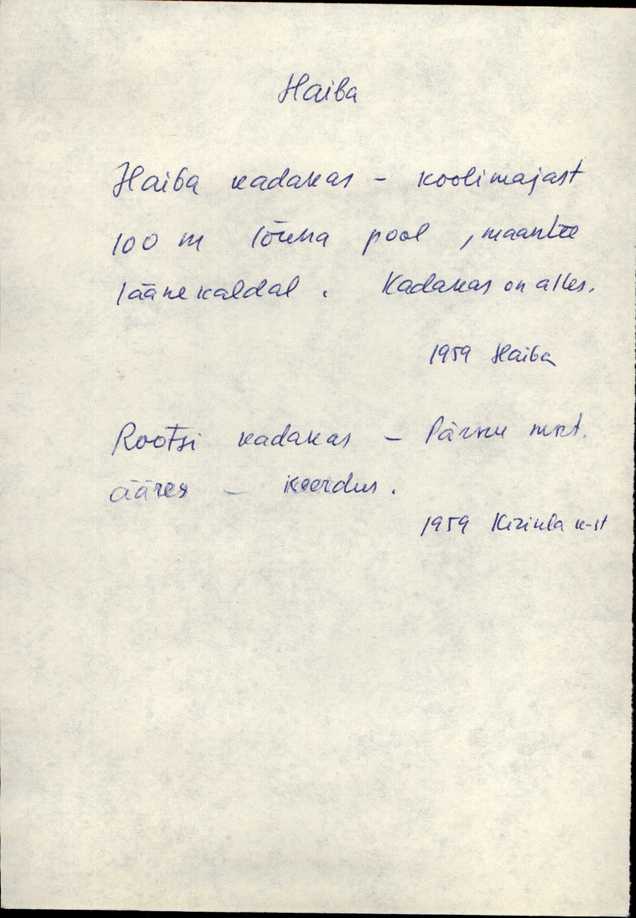 Haiba
Haiba kadakas – koolimajast
100 m lõuna pool, maantee
läänekaldal. Kadakas on alles.
1959 Haiba
Rootsi kadakas – Pärnu mnt.
ääres – Keerdus.
1959 k-st